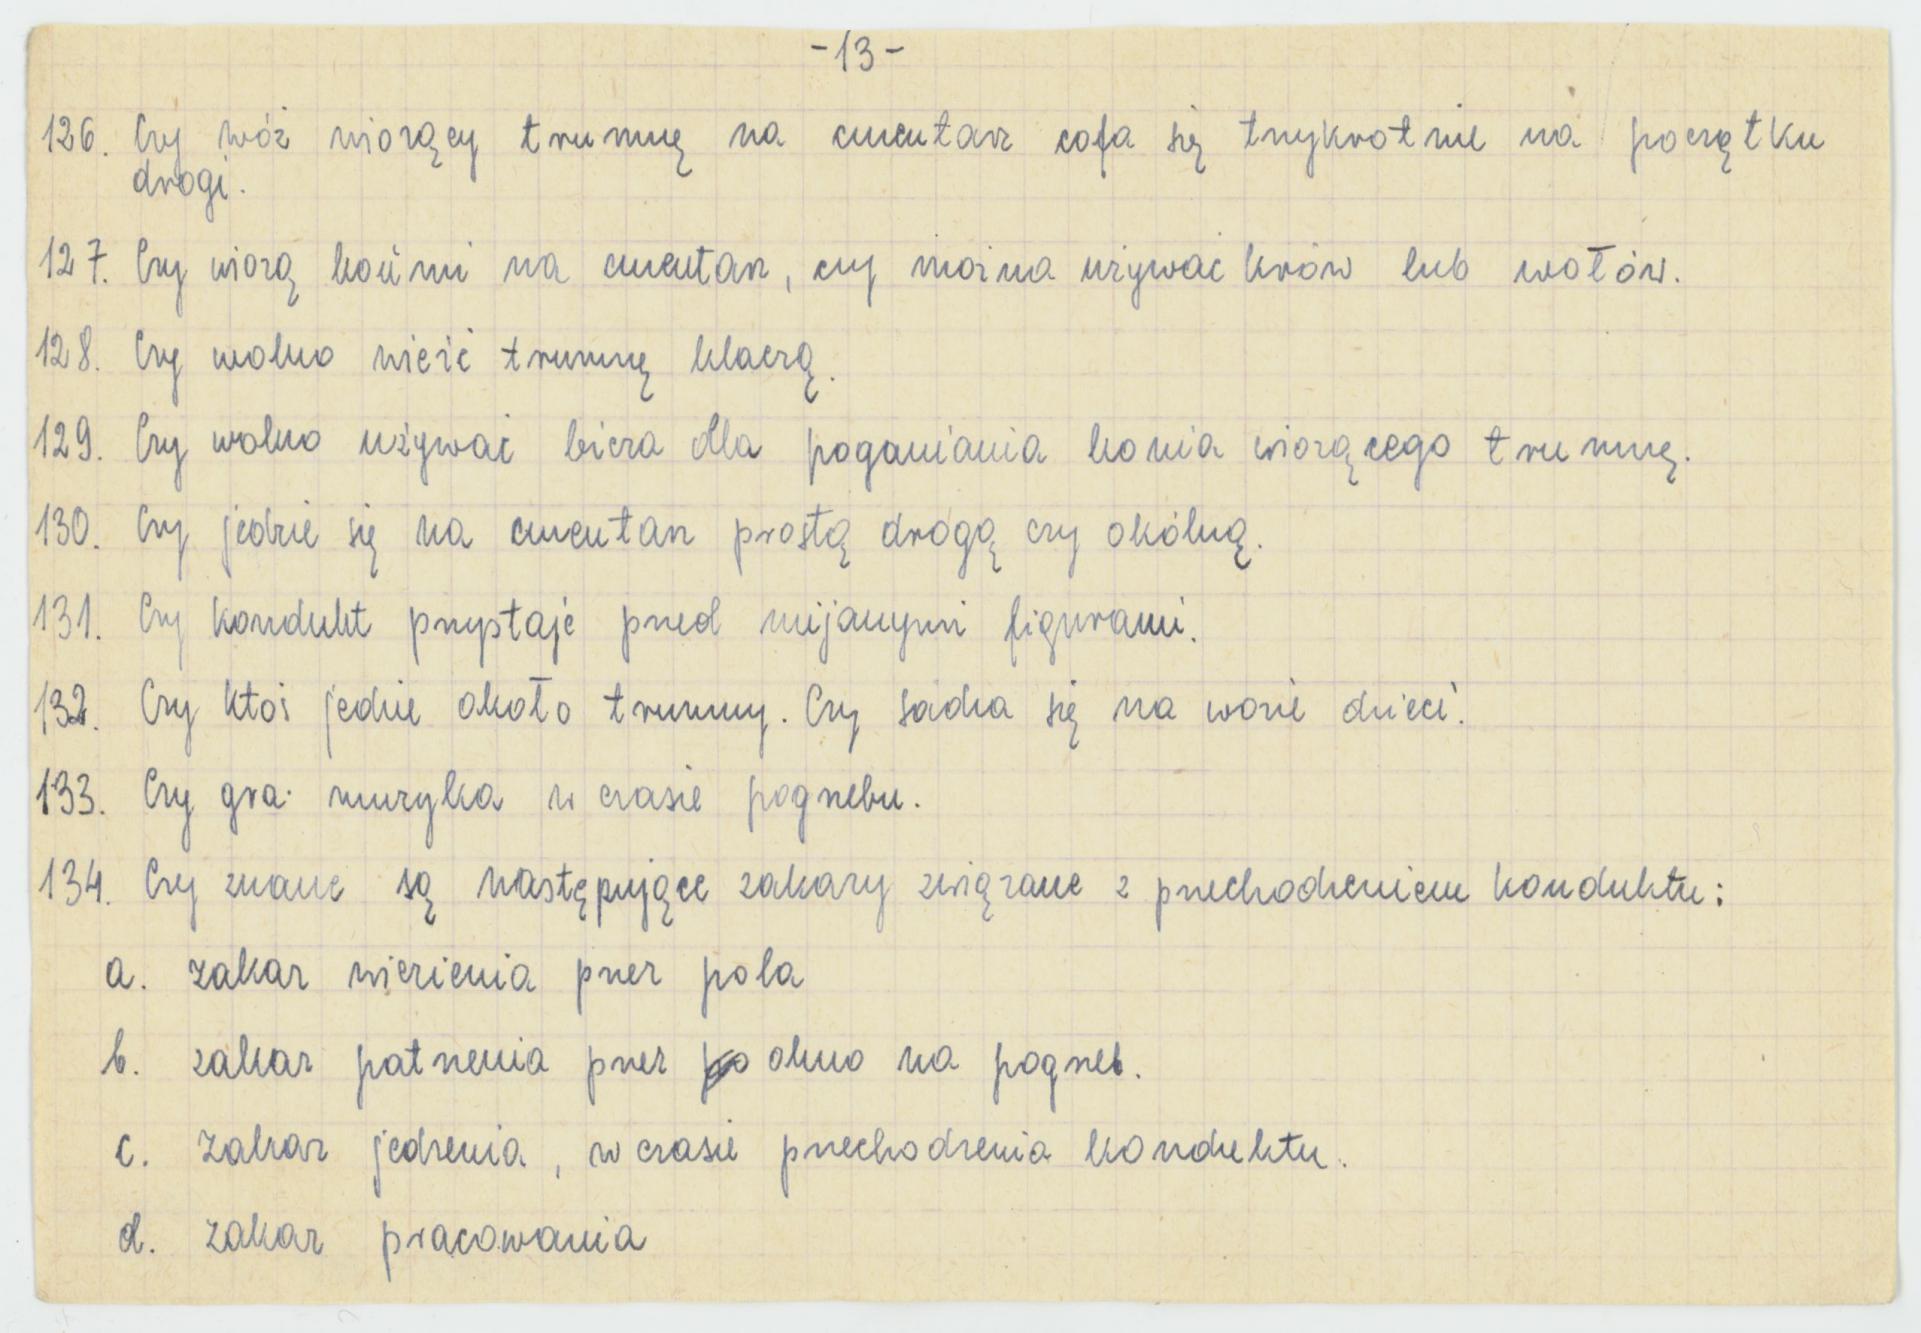 -13-
126. Czy wóz wiozący trumnę na cmentarz cofa się trzykrotnie na początku
drogi.
127. Czy wiozą końmi na cmentarz, czy można używać krów lub wołów.
128. Czy wolno wieźć trumnę klaczą.
129. Czy wolno używać bicza dla poganiania konia wiozącego trumnę.
130. Czy jedzie się na cmentarz prostą drogą czy okólną.
131. Czy kondukt przystaje przed mijanymi figurami.
132. Czy ktoś jedzie około trumny. Czy sadza się na wozie dzieci.
133. Czy gra muzyka w czasie pogrzebu.
134. Czy znane są następujące zakazy związane z przechodzeniem konduktu:
a. zakaz wiezienia przez pola
b. zakaz patrzenia przez okno na pogrzeb.
c. zakaz jedzenia, w czasie przechodzenia konduktu.
d. zakaz pracowania